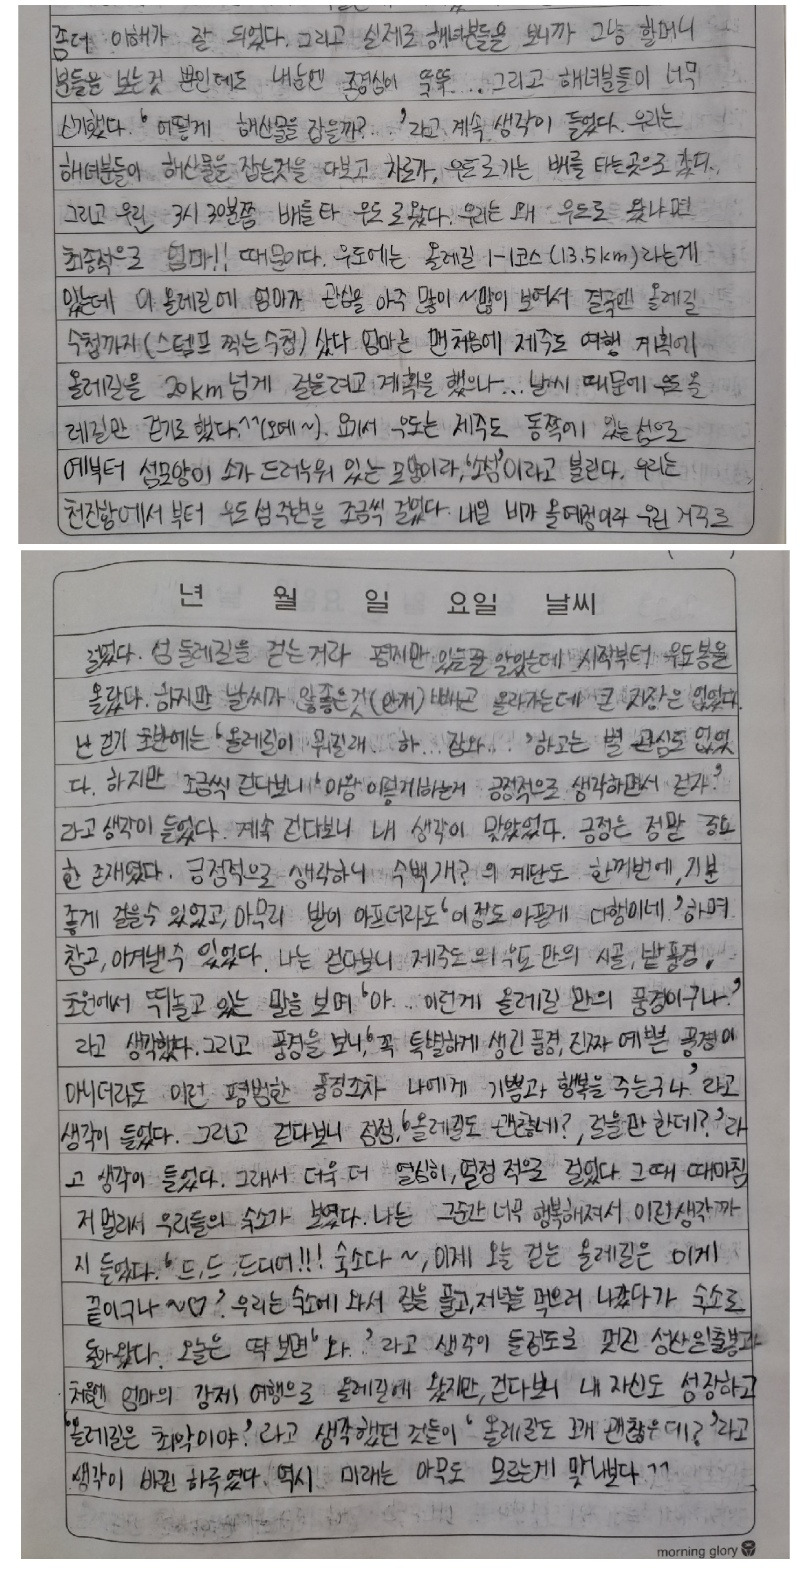 좀더 이해가 잘 되었다. 그리고 실제로 해녀분들을 보니까 그냥 할머니
분들을 보는것 뿐인데도 내눈엔 존경심이 뚝뚝... 그리고 해녀분들이 너무
신기했다. '어떻게 해산물을 잡을까?..'라고 계속 생각이 들었다. 우리는
해녀분들이 해산물을 잡는것을 다보고 차로가, 우도로가는 배를 타는곳으로 갔다.
그리고 우린 3시 30분쯤 배를타 우도로왔다. 우리는 왜 우도로 왔냐면
최종적으로 엄마!! 때문이다. 우도에는 올레길 1-1코스(13.5km)라는게
있는데 이 올레길에 엄마가 관심을 아주 많이~많이 보여서 결국엔 올레길
수첩까지(스템프 찍는수첩) 샀다 엄마는 맨처음에 제주도 여행 계획에
올레길을 20km넘게 걸을려고 계획을 했으나... 날씨 때문에 우도 올
레길만 걷기로 했다.^^(오예~). 요기서 우도는 제주도 동쪽에 있는 섬으로
예부터 섬모양이 소가 드러누워 있는 모양이라, '소섬'이라고 불린다. 우리는
천진항에서 부터 우도 섬주변을 조금씩 걸었다. 내일 비가 올예정이라 우린 거꾸로
년 월 일 요일 날씨
걸었다. 섬 둘레길을 걷는거라 평지만 있는줄 알았는데 시작부터 우도봉을
올랐다. 하지만 날씨가 않좋은것(안개) 빼곤 올라가는데 큰 지장은 없었다.
난 걷기 초반에는 '올레길이 뭐길래.. 하... 참와..'하고는 별 관심도 없었
다. 하지만 조금씩 걷다보니 '이왕 이렇게하는게 긍정적으로 생각하면서 걷자.'
라고 생각이 들었다. 계속 걷다보니 내 생각이 맞았었다. 긍정은 정말 중요
한 존재였다. 긍정적으로 생각하니 수백개?의 계단도 한꺼번에, 기분
좋게 걸을수 있었고, 아무리 발이 아프더라도 '이정도 아픈게 다행이네.'하며
참고, 이겨낼수 있었다. 나는 걷다보니 제주도의 우도만의 시골, 밭풍경,
초원에서 뛰놀고 있는 말을 보며 '아... 이런게 올레길 만의 풍경이구나.'
라고 생각했다. 그리고 풍경을 보니, '꼭 특별하게 생긴 풍경, 진짜 예쁜 풍경이
아니더라도 이런 평범한 풍경조차 나에게 기쁨과 행복을 주는구나'라고
생각이 들었다. 그리고 걷다보니 점점, '올레길도 괜찮네?, 걸을만 한데?'라
고 생각이 들었다. 그래서 더욱 더 열심히, 열정적으로 걸었다 그때 때마침
저 멀리서 우리들의 숙소가 보였다. 나는 그순간 너무 행복해져서 이런생각까
지 들었다. '드,드,드디어!!! 숙소다~, 이제 오늘 걷는 올레길은 이게
끝이구나~♡' 우리는 숙소에 와서 짐을 풀고, 저녁을 먹으러 나갔다가 숙소로
돌아왔다. 오늘은 딱 보면 '와.'라고 생각이 들정도로 멋진 성산일출봉과
처음엔 엄마의 강제 여행으로 올레길에 왔지만, 걷다보니 내 자신도 성장하고
'올레길은 최악이야.'라고 생각했던 것들이 '올레길도 꽤 괜찮은데?'라고
생각이 바뀐 하루였다. 역시 미래는 아무도 모르는게 맞나보다.^^
morning glory